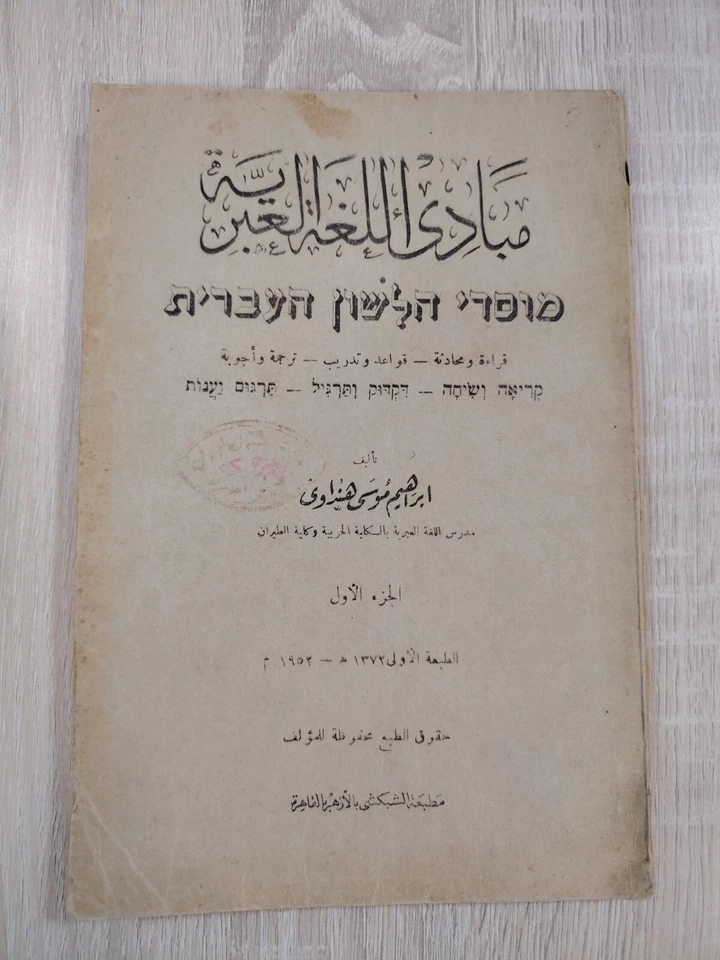 مبادئ اللغة العبرية
מוסדי הלשון העברית
قراءة ومحادثة — قواعد وتدريب — ترجمة وأجوبة
קְרִיאָה וְשִׂיחָה — דִּקְדּוּק וְתַרְגִּיל — תַּרְגּוּם וַעֲנוֹת
تأليف
ابراهيم موسى هنداوى
مدرس اللغة العبرية بالكلية الحربية وكلية الطيران
الجزء الأول
الطبعة الأولى ١٣٧٢ ه — ١٩٥٢ م
حقوق الطبع محفوظة للمؤلف
مطبعة الشبكشى بالأزهر بالقاهرة